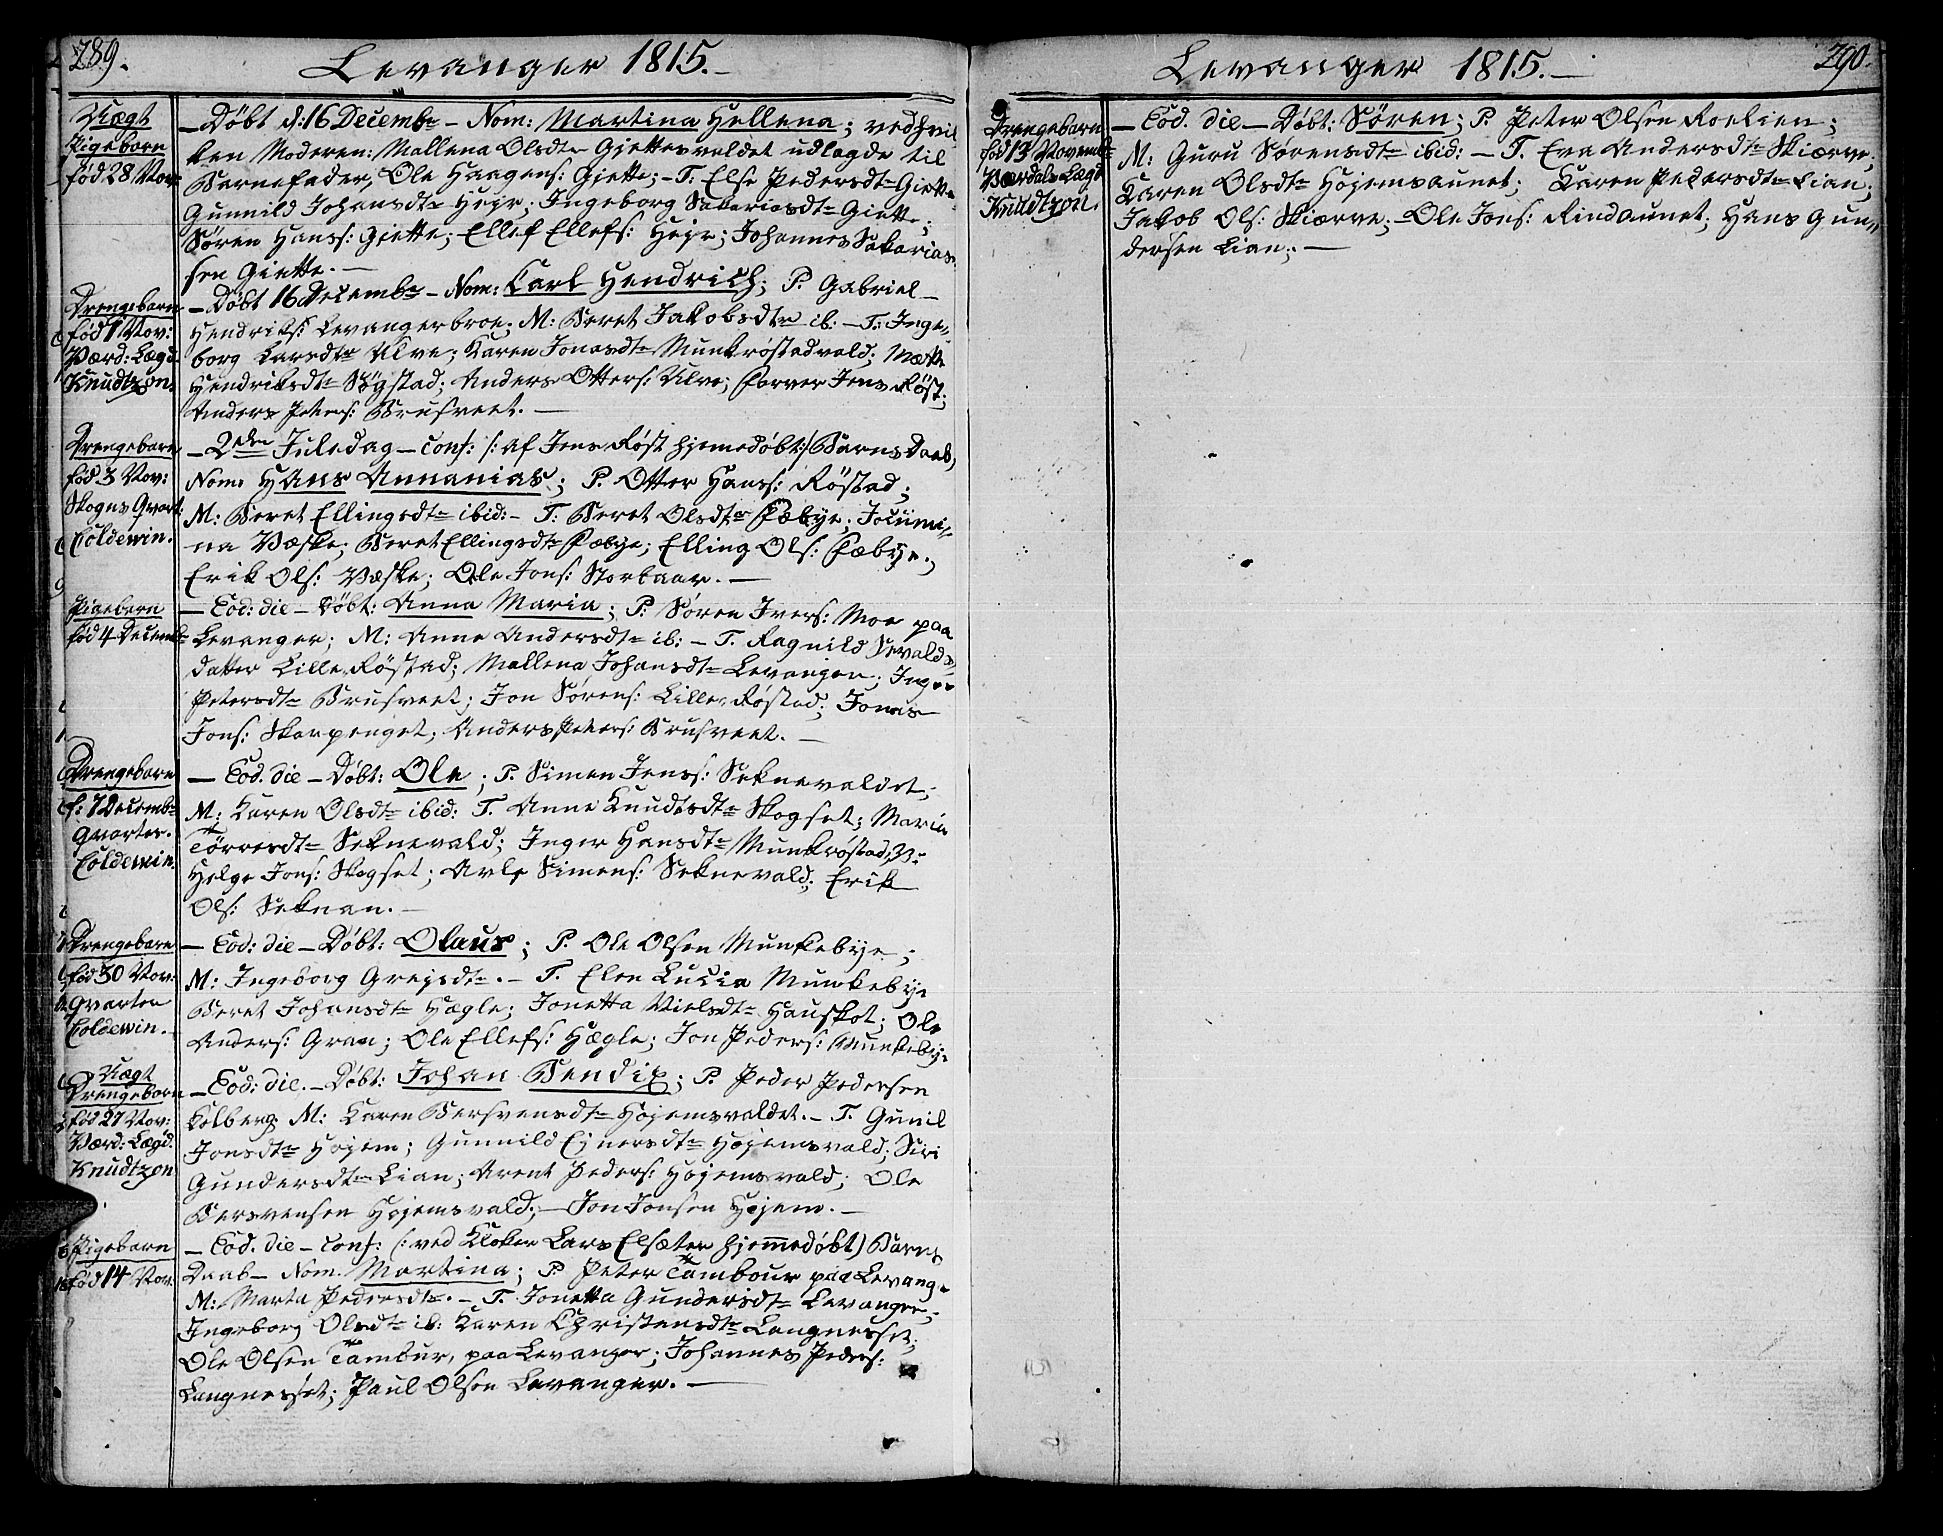 289.
Levanger 1815.
Uægt
Pigebarn
fød 28 Nov:
— Døbt d: 16 Decembr – Nom: Martina Hellena; ved hvil
ken Moderen: Mallena Olsdtr Gjettesvaldet udlagde til
Barnefader, Ole Haagens: Gjette; – T. Else Pedersdtr Giette
Gunnild Johansdtr Hejr; Ingeborg Sakariasdtr Giette;
Søren Hanss: Gjette; Ellef Ellefs: Hejr; Johannes Sakarias
sen Giette. —
Drengebarn
fød 1 Nov:
Værd: Lægd
Knudtzon.
— Døbt 16 Decembr – Nom: Carl Hendrich; P. Gabriel
Hendriks: Levangerbroe; M: Beret Jakobsdtr ib: – T: Inge
borg Larsdtr Ulve; Karen Jonasdtr Munkrøstadvald; Mætte
Hendriksdtr Søgstad; Anders Otters: Ulve; Farver Jens Røst;
Anders Peters: Brusveet. —
Drengebarn
fød 3 Nov:
Skogns Qvart:
Coldewin.
— 2den Juledag – Conf: /: af Jens Røst hjemedøbt :/ Barns Daab,
Nom: Hans Annanias; P. Otter Hanss: Røstad;
M: Beret Ellingsdtr ibid: – T: Beret Olsdtr Fæbye; Jocumi
na Væske; Beret Ellingsdtr Fæbye; Elling Ols: Fæbye;
Erik Ols: Væske; Ole Jons: Storbaar. —
Pigebarn
fød 4 Decembr
— Eod: die – Døbt: Anna Maria; P: Søren Ivers: Moe paa
Levanger; M: Anne Andersdtr ib: – T. Ragnild Sivalds
datter Lille Røstad; Mallena Johansdtr Levanger; Inger
Petersdtr Brusveet; Jon Sørens: Lille Røstad; Jonas
Jons: Skarpenget; Anders Peters: Brusveet. —
Drengebarn
f: 7 Decembr
Qvarter.
Coldewin.
— Eod. die – Døbt: Ole; P. Simen Jenss: Seknevaldet;
M: Karen Olsdtr ibid: T. Anne Knudtsdtr Skogset; Maria
Tørresdtr Seknevald; Inger Hansdtr Munkrøstad;
Helge Jons: Skogset; Arle Simens: Seknevald; Erik
Ols: Seknan. —
Drengebarn
fød 30 Nov:
Qvarter
Coldewin.
— Eod: die – Døbt: Olaus; P. Ole Olsen Munkebye;
M: Ingeborg Grejsdtr. – T. Elen Lucia Munkebye
Beret Johansdtr Hægle; Jonetta Nielsdtr Hauskot; Ole
Anders: Gran; Ole Ellefs: Hægle; Jon Peders: Munkebye
Uægt
Drengebarn
fød 27 Nov:
Værd: Lægd.
Knudtzon
— Eod: die. – Døbt: Johan Bendix; P. Peder Pedersen
Kolberg M: Karen Bersvensdtr Højemsvaldet. – T. Gunil
Jonsdtr Højem; Gunnild Ejnersdtr Højemsvald; Siri
Gundersdtr Lian; Arent Peders: Højemsvald; Ole
Bersvensen Højemsvald; – Jon Jonsen Højem. —
Pigebarn
fød 14 Nov.
— Eod. die – Conf: (: ved Kloker Lars Elsæter hjemmedøbt) Barns
Daab – Nom. Martina; P. Peter Tambour paa Levang
M: Marta Pedersdtr. – T. Jonetta Gundersdtr Levanger;
Ingeborg Olsdtr ib: Karen Christensdtr Langnesset;
Ole Olsen Tambur, paa Levanger; Johannes Peders:
Langnesset; Paul Olsen Levanger. —
Levanger 1815.
290.
Drengebarn
fød 13 Novembr
Værdals Lægd
Knudtzon.
— Eod. die – Døbt: Søren; P. Peter Olsen Roelien;
M: Guru Sørensdtr ibid: – T. Eva Andersdtr Skiærve;
Karen Olsdtr Højemsaunet; Karen Pedersdtr Lian;
Jakob Ols: Skiærve; – Ole Jons: Rindaunet; Hans Gun
dersen Lian; —